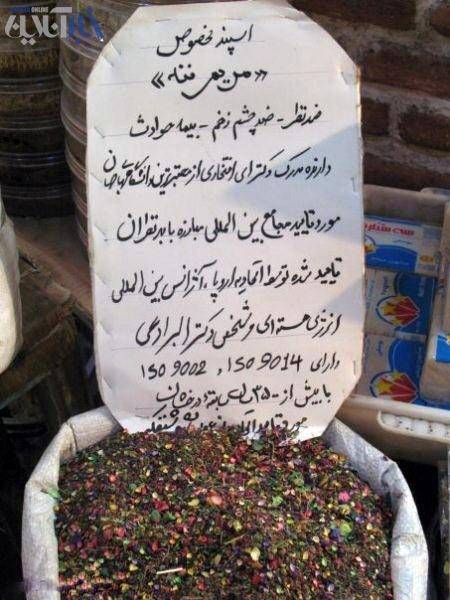 خبرآنلاین
ONLINE
اسپند مخصوص
«من یمی ننه»
ضد نظر - ضد چشم زخم - بیمه حوادث
دارنده مدرک دکترای افتخاری از معتبرترین دانشگاههای جهان
مورد تایید مجامع بین المللی مبارزه با بد نظران
تایید شده توسط اتحادیه اروپا، آژانس بین المللی
انرژی هسته ای و شخص دکتر البرادعی
دارای ISO 9014، ISO 9002
با بیش از ۳۵۰۰
مورد تایید